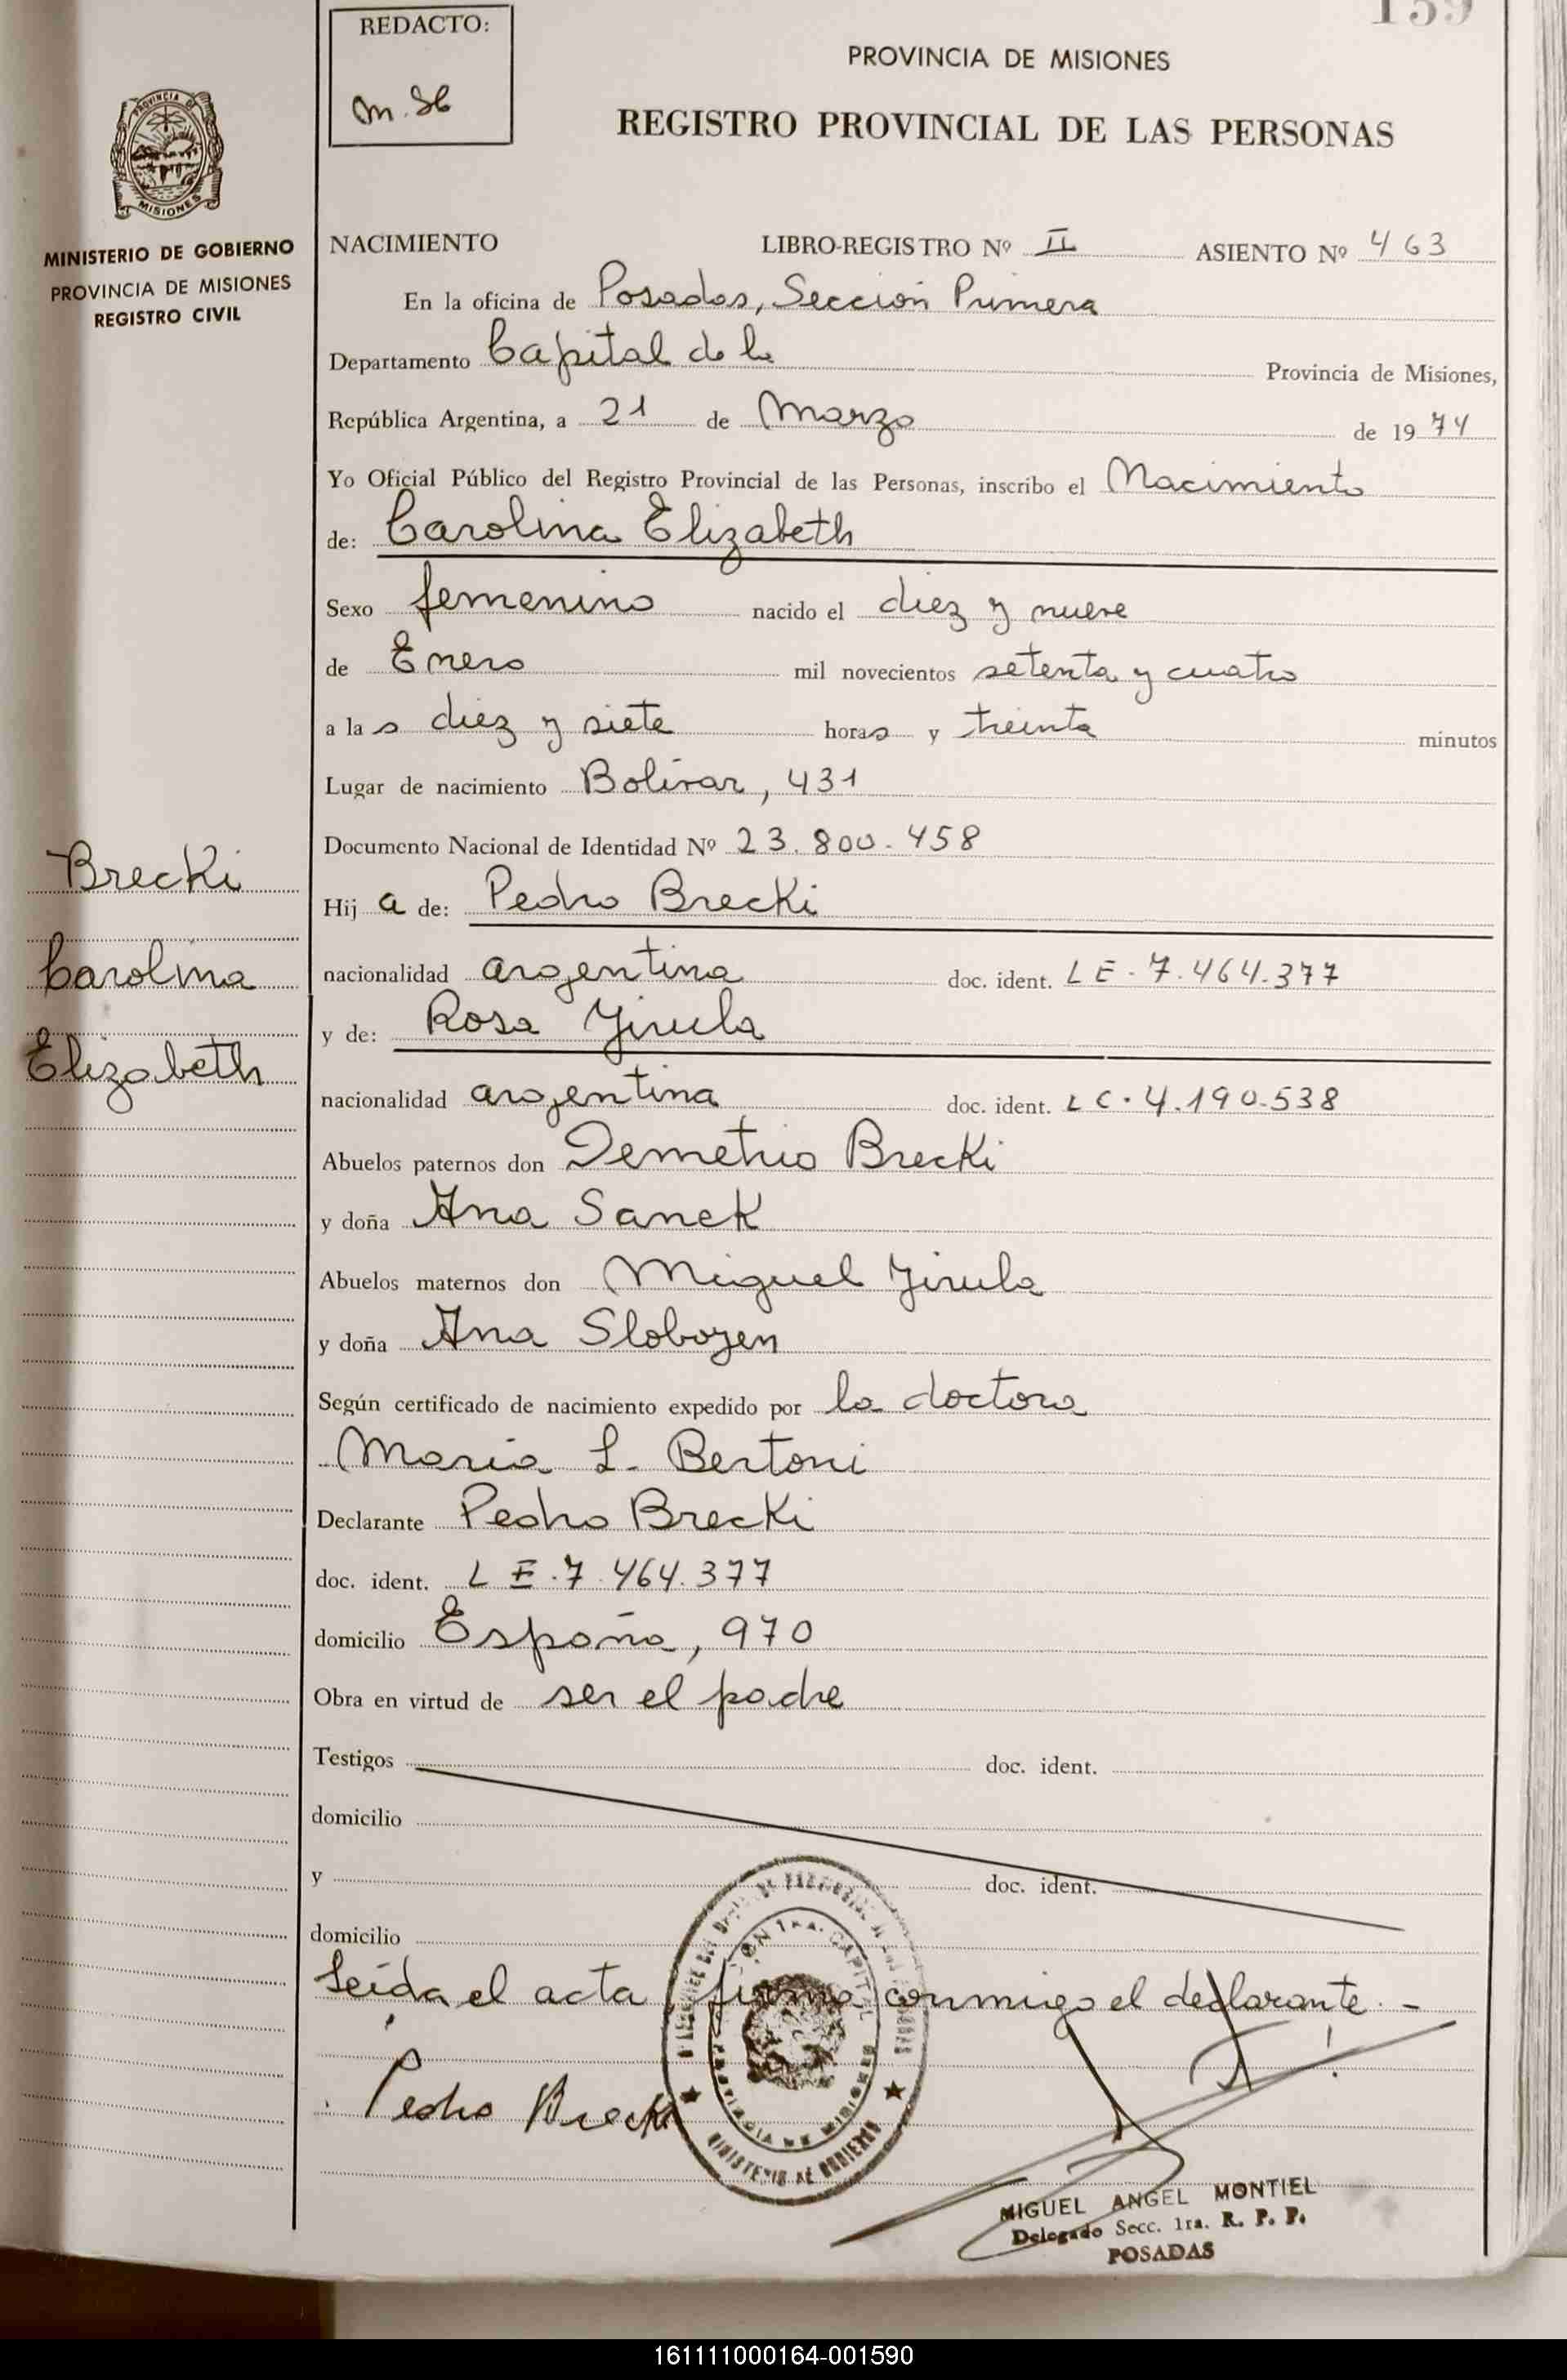 159
REDACTO:
PROVINCIA DE MISIONES
REGISTRO PROVINCIAL DE LAS PERSONAS
PROVINCIA DE
MISIONES
MINISTERIO DE GOBIERNO
PROVINCIA DE MISIONES
REGISTRO CIVIL
NACIMIENTO LIBRO-REGISTRO Nº II ASIENTO Nº 463
En la oficina de Posadas, Sección Primera
Departamento Capital de la Provincia de Misiones,
República Argentina, a 21 de Marzo de 1974
Yo Oficial Público del Registro Provincial de las Personas, inscribo el Nacimiento
de: Carolina Elizabeth
Sexo femenino nacido el diez y nueve
de Enero mil novecientos setenta y cuatro
a las diez y siete horas y treinta minutos
Lugar de nacimiento Bolívar, 431
Documento Nacional de Identidad Nº 23.800.458
Brecki
Carolina
Elizabeth
Hija de: Pedro Brecki
nacionalidad argentina doc. ident. LE. 7.464.377
y de: Rosa Jirula
nacionalidad argentina doc. ident. LC. 4.190.538
Abuelos paternos don Demetrio Brecki
y doña Ana Sanek
Abuelos maternos don Miguel Jirula
y doña Ana Slobozen
Según certificado de nacimiento expedido por la doctora
María L. Bertoni
Declarante Pedro Brecki
doc. ident. LE. 7.464.377
domicilio España, 970
Obra en virtud de ser el padre
Testigos doc. ident.
domicilio
y doc. ident.
domicilio
Leída el acta, firma conmigo el declarante. -
Pedro Brecki
MINISTERIO DE GOBIERNO
MIGUEL ANGEL MONTIEL
Delegado Secc. 1ra. R. P. P.
POSADAS
161111000164-001590